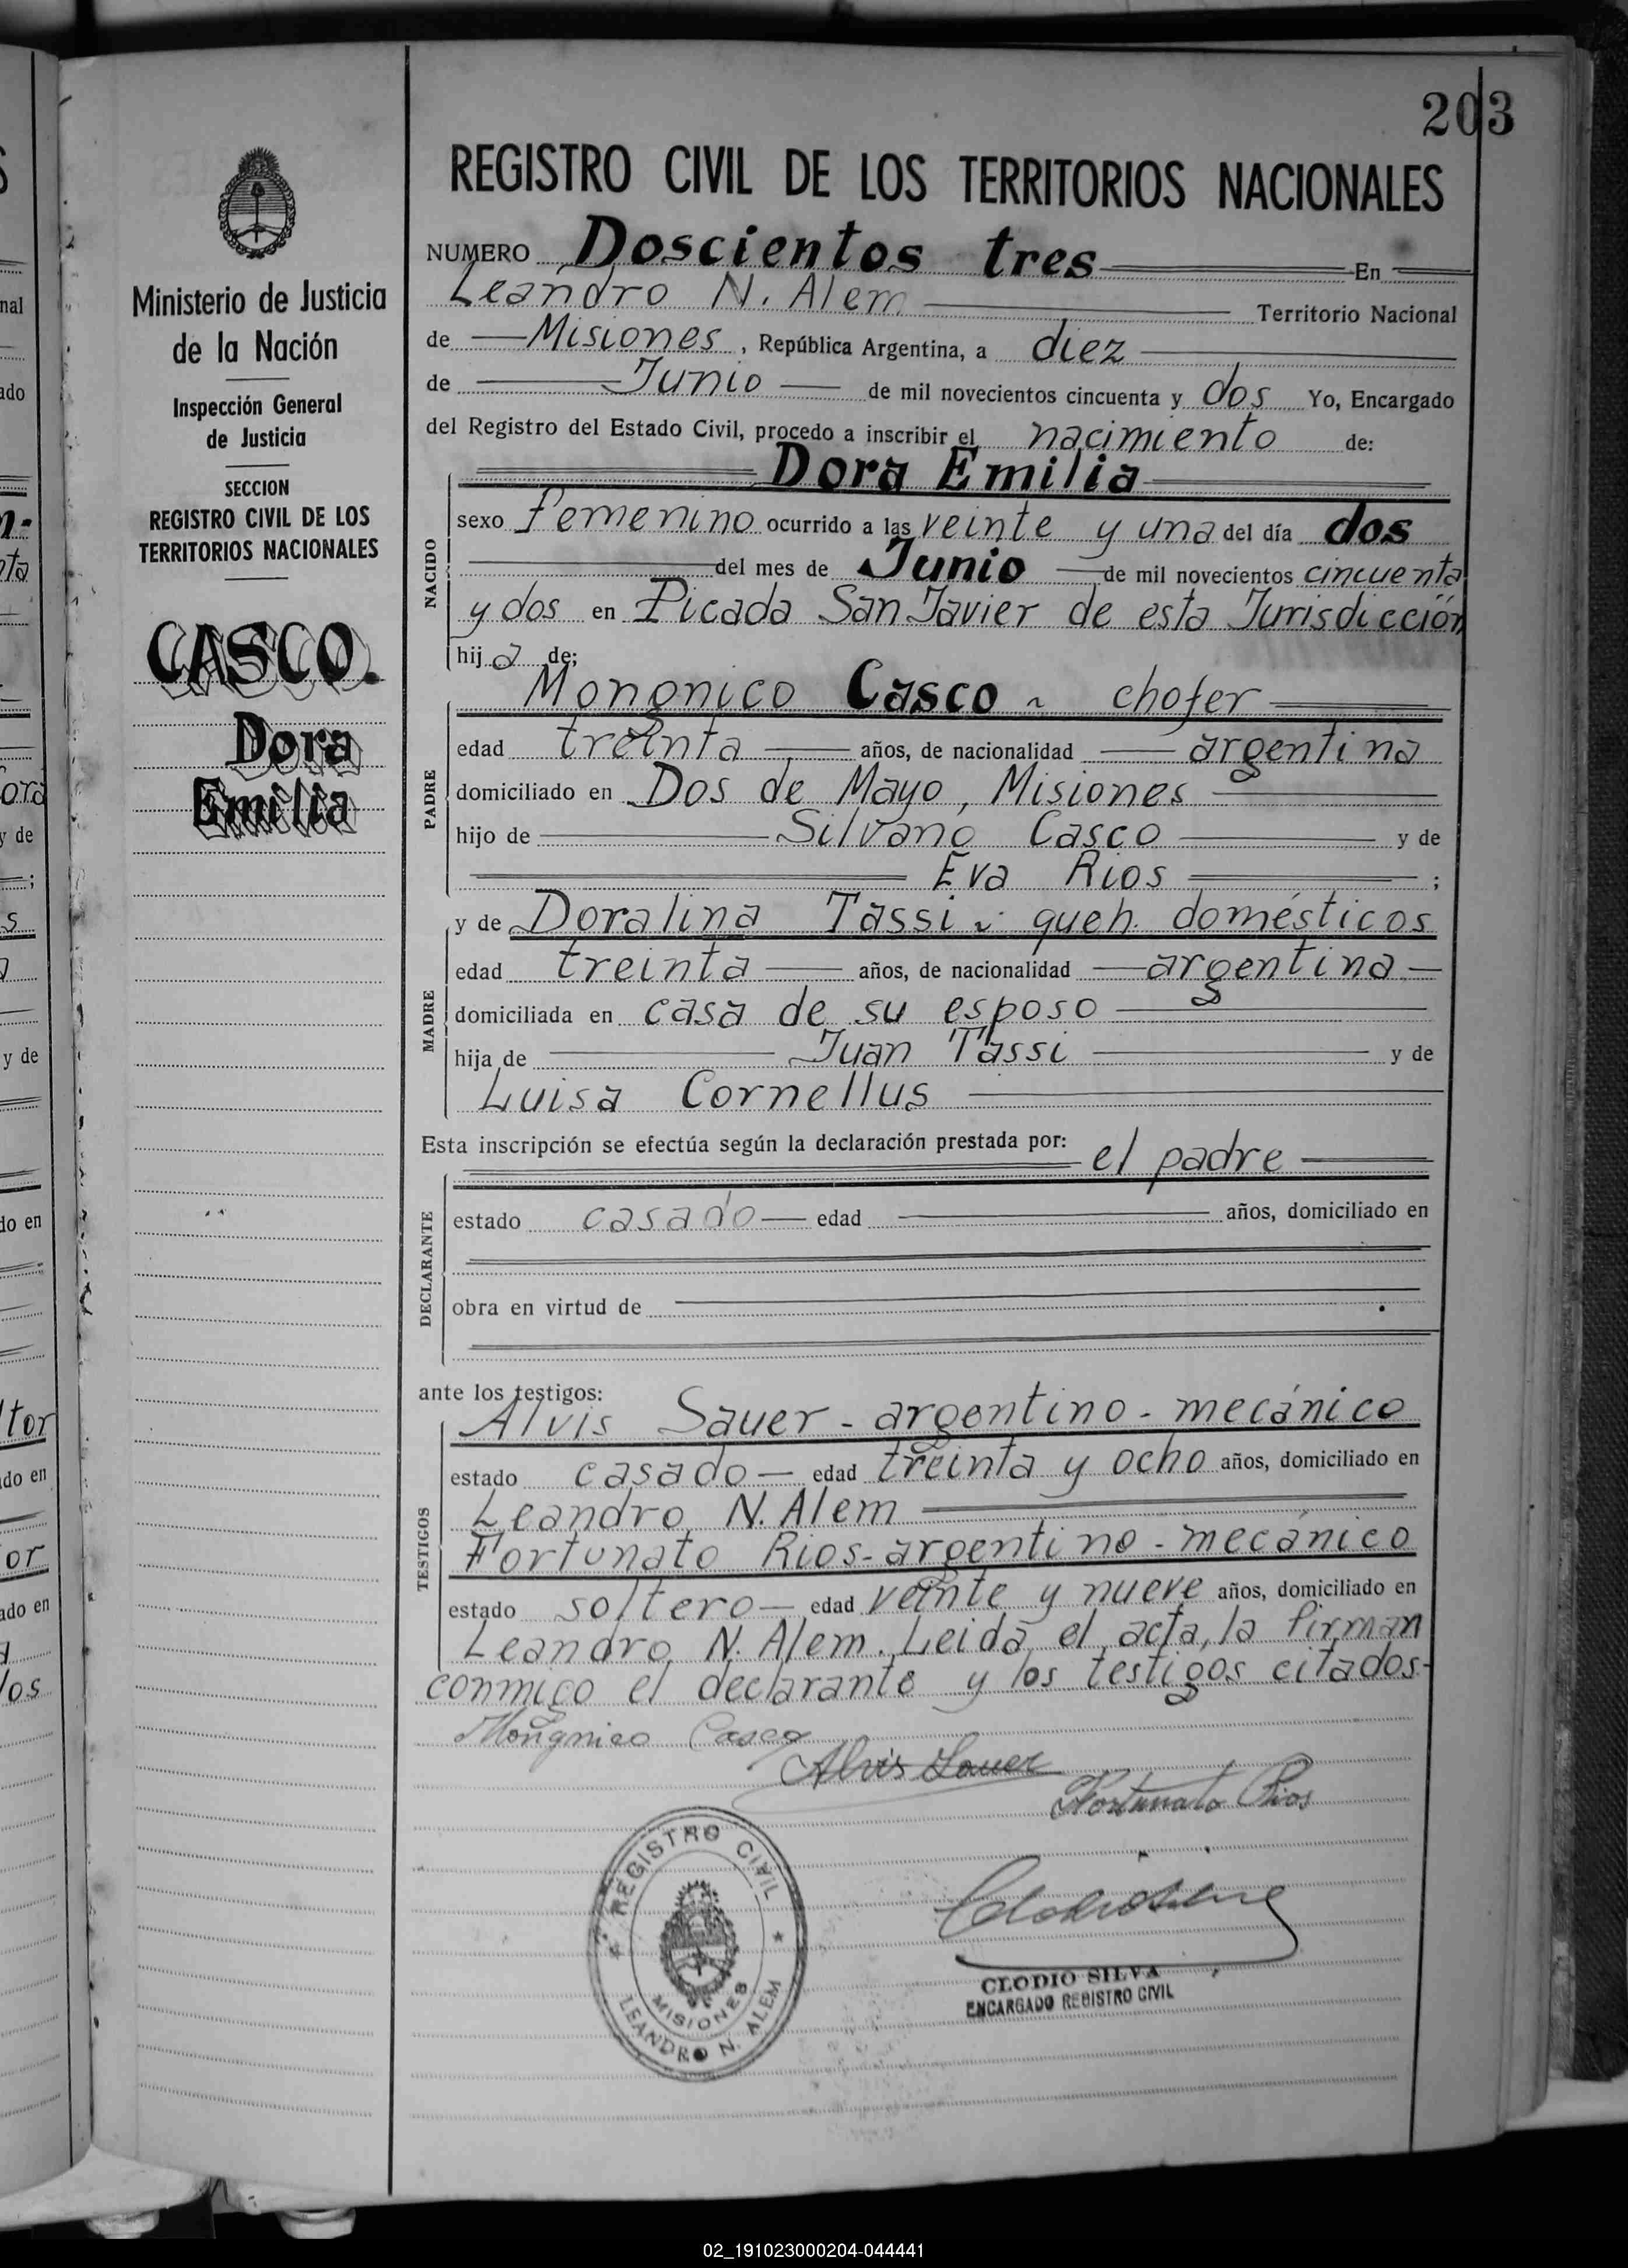 203
REGISTRO CIVIL DE LOS TERRITORIOS NACIONALES
Ministerio de Justicia
de la Nación
Inspección General
de Justicia
SECCION
REGISTRO CIVIL DE LOS
TERRITORIOS NACIONALES
CASCO.
Dora
Emilia
NUMERO Doscientos tres En
Leandro N. Alem Territorio Nacional
de Misiones, República Argentina, a diez
de Junio de mil novecientos cincuenta y dos Yo, Encargado
del Registro del Estado Civil, procedo a inscribir el nacimiento de:
Dora Emilia
NACIDO
sexo femenino ocurrido a las veinte y una del día dos
del mes de Junio de mil novecientos cincuenta
y dos en Picada San Javier de esta Jurisdicción
hija de;
Mongnico Casco ~ chofer
PADRE
edad treinta años, de nacionalidad argentina
domiciliado en Dos de Mayo, Misiones
hijo de Silvano Casco y de
Eva Rios ;
MADRE
y de Doralina Tassi ~ queh. domésticos
edad treinta años, de nacionalidad argentina
domiciliada en casa de su esposo
hija de Juan Tassi y de
Luisa Cornellus
Esta inscripción se efectúa según la declaración prestada por: el padre
DECLARANTE
estado casado edad años, domiciliado en
obra en virtud de
ante los testigos:
TESTIGOS
Alvis Sauer - argentino - mecánico
estado casado edad treinta y ocho años, domiciliado en
Leandro N. Alem
Fortunato Rios - argentino - mecánico
estado soltero edad veinte y nueve años, domiciliado en
Leandro N. Alem. Leida el acta, la firman
conmigo el declarante y los testigos citados-
Mongnico Casco
Alvis Sauer
Fortunato Rios
REGISTRO CIVIL
MISIONES
LEANDRO N. ALEM
CLODIO SILVA
ENCARGADO REGISTRO CIVIL
02_191023000204-044441